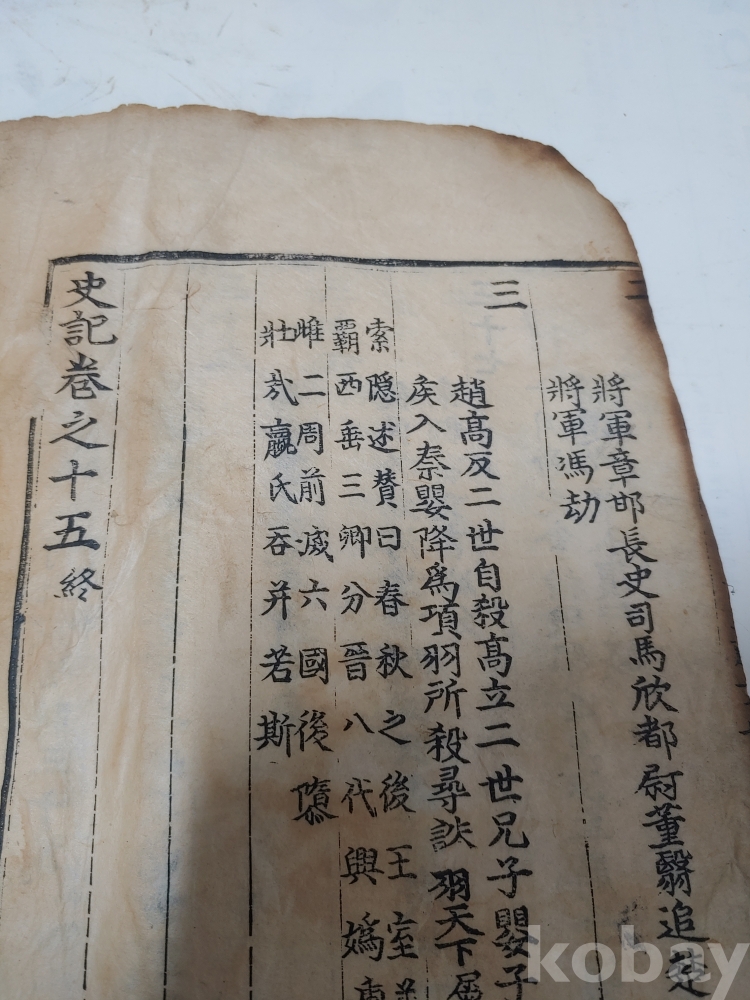 二
將軍章邯長史司馬欣都尉董翳追楚
將軍馮劫
三
趙高反二世自殺高立二世兄子嬰子
矦入秦嬰降爲項羽所殺尋誅羽天下屬
索隱述賛曰春秋之後王室
覇西垂三卿分晉八代興嬀
雌二周前滅六國後隳
壯㢤嬴氏吞并若斯
史記卷之十五終
kobay